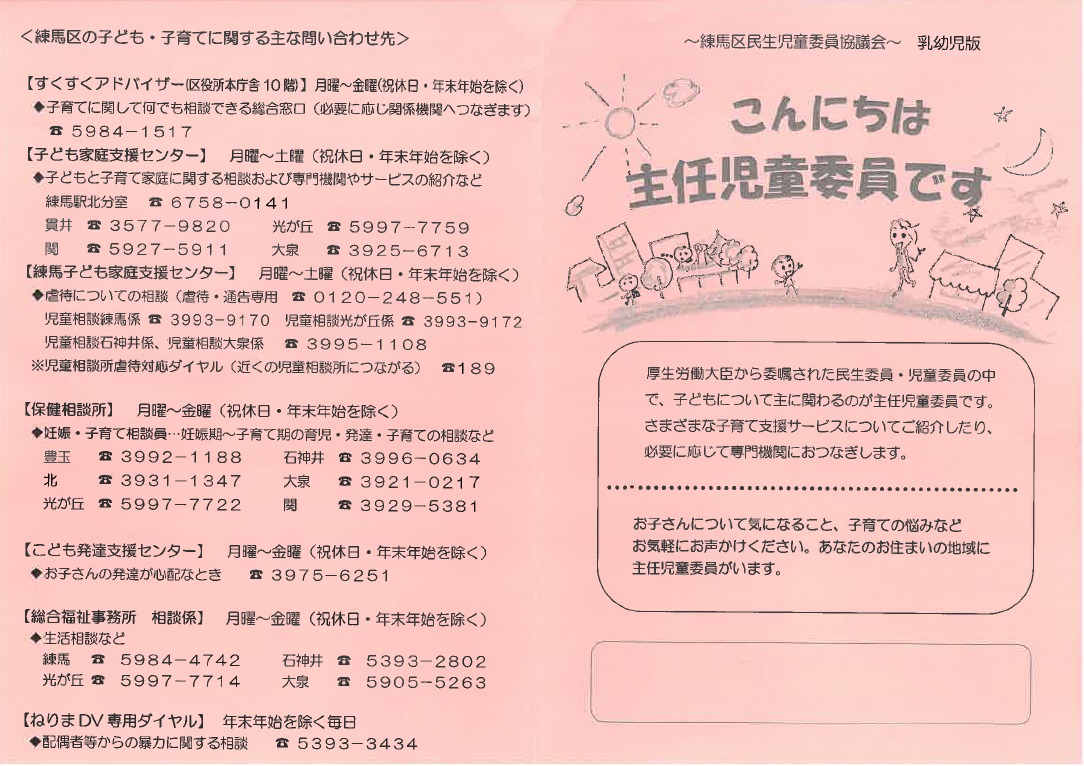 ＜練馬区の子ども・子育てに関する主な問い合わせ先＞
【すくすくアドバイザー(区役所本庁舎10階)】月曜～金曜(祝休日・年末年始を除く)
◆子育てに関して何でも相談できる総合窓口（必要に応じ関係機関へつなぎます）
☎ 5984－1517
【子ども家庭支援センター】　月曜～土曜（祝休日・年末年始を除く）
◆子どもと子育て家庭に関する相談および専門機関やサービスの紹介など
練馬駅北分室　☎ 6758－0141
貫井　☎ 3577－9820　　光が丘　☎ 5997－7759
関　☎ 5927－5911　　大泉　☎ 3925－6713
【練馬子ども家庭支援センター】　月曜～土曜（祝休日・年末年始を除く）
◆虐待についての相談（虐待・通告専用　☎ 0120－248－551）
児童相談練馬係 ☎ 3993－9170　児童相談光が丘係 ☎ 3993－9172
児童相談石神井係、児童相談大泉係　☎ 3995－1108
※児童相談所虐待対応ダイヤル（近くの児童相談所につながる）　☎189
【保健相談所】　月曜～金曜（祝休日・年末年始を除く）
◆妊娠・子育て相談員…妊娠期～子育て期の育児・発達・子育ての相談など
豊玉　☎ 3992－1188　　石神井　☎ 3996－0634
北　☎ 3931－1347　　大泉　☎ 3921－0217
光が丘　☎ 5997－7722　　関　☎ 3929－5381
【こども発達支援センター】　月曜～金曜（祝休日・年末年始を除く）
◆お子さんの発達が心配なとき　☎ 3975－6251
【総合福祉事務所　相談係】　月曜～金曜（祝休日・年末年始を除く）
◆生活相談など
練馬　☎ 5984－4742　　石神井　☎ 5393－2802
光が丘　☎ 5997－7714　　大泉　☎ 5905－5263
【ねりまDV専用ダイヤル】　年末年始を除く毎日
◆配偶者等からの暴力に関する相談　☎ 5393－3434
～練馬区民生児童委員協議会～　乳幼児版
こんにちは
主任児童委員です
厚生労働大臣から委嘱された民生委員・児童委員の中
で、子どもについて主に関わるのが主任児童委員です。
さまざまな子育て支援サービスについてご紹介したり、
必要に応じて専門機関におつなぎします。
お子さんについて気になること、子育ての悩みなど
お気軽にお声かけください。あなたのお住まいの地域に
主任児童委員がいます。